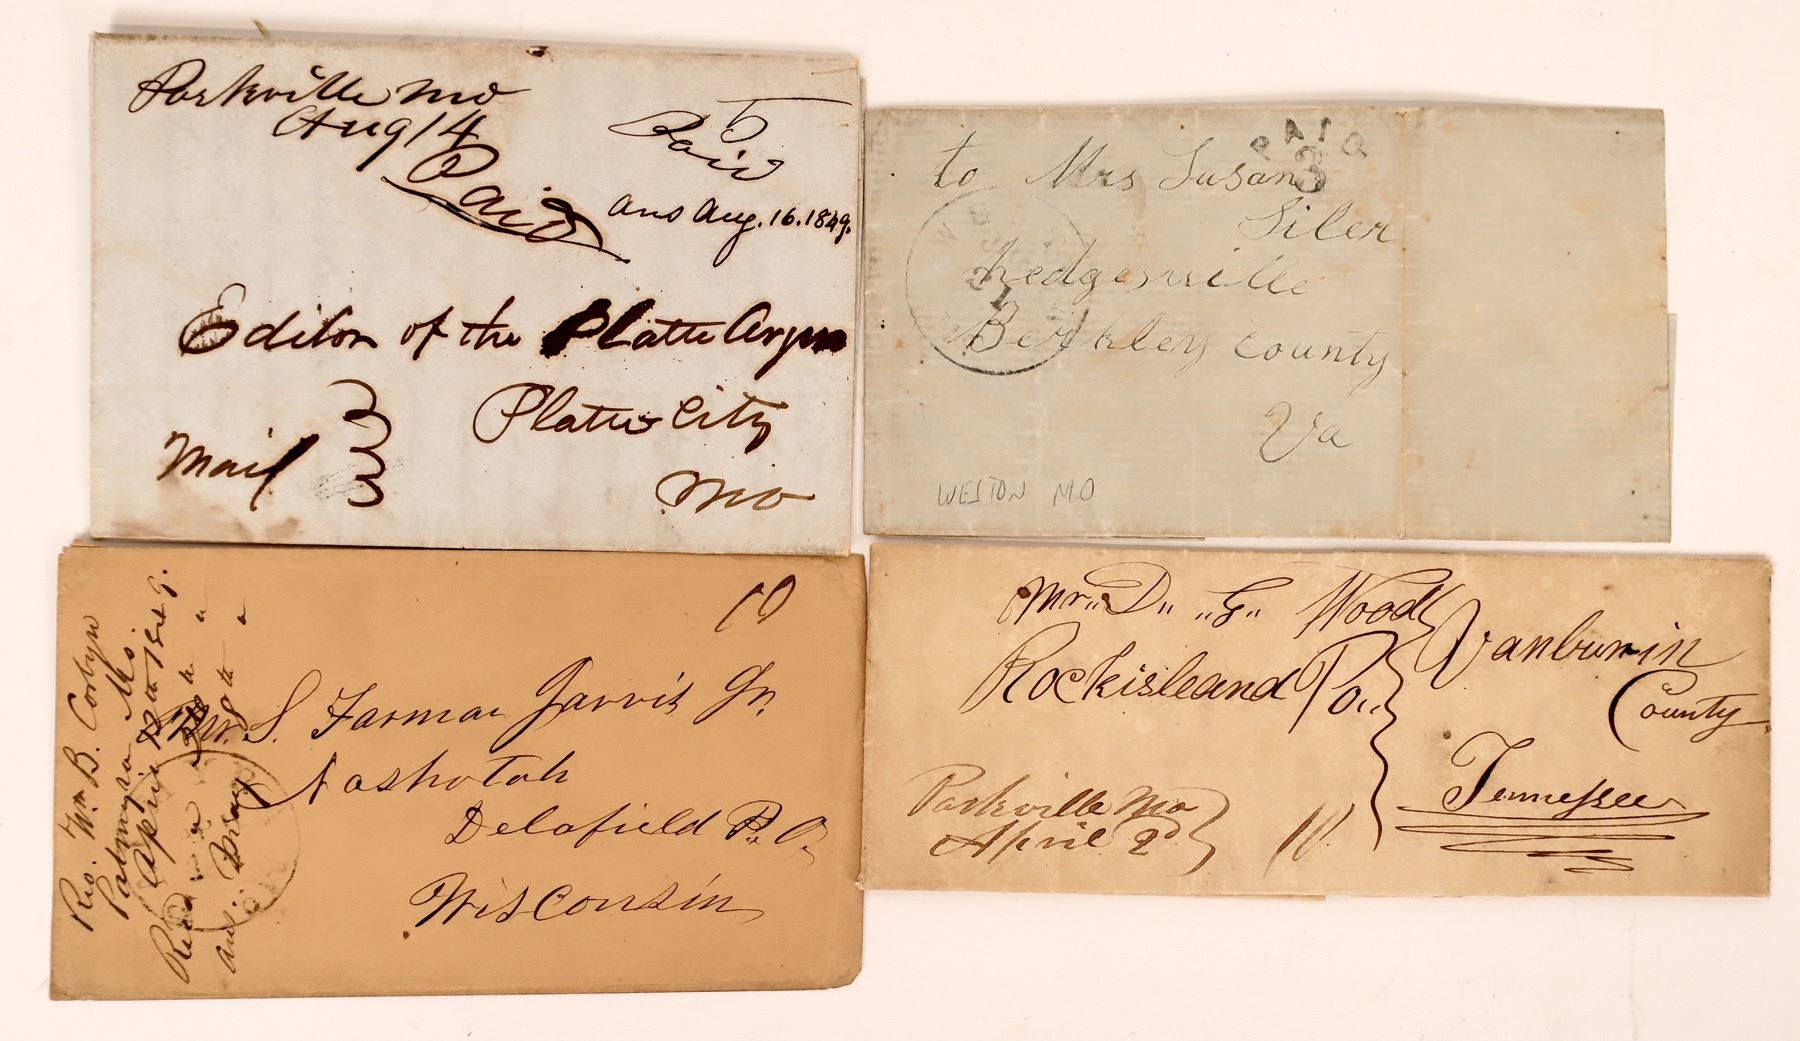 Parkville Mo
Aug 14
Paid
5
Paid
ans Aug. 16. 1849.
Editor of the Platte Argus
Platte City
Mo
Mail
PAID
3
to Mrs Susan
Siler
hedgesville
Berkley county
Va
WESTON MO
10
Mr. S. Farmar Jarvis Jr.
Nashotah
Delafield P. O.
Wisconsin
Wm. B. Corbyn
Palmyra Mo.
April
Mr,, D,, ,,G,, Wood
Rockisleand Po,,
Vanburin
County
Tennessee
Parkville Mo
April 2d
10